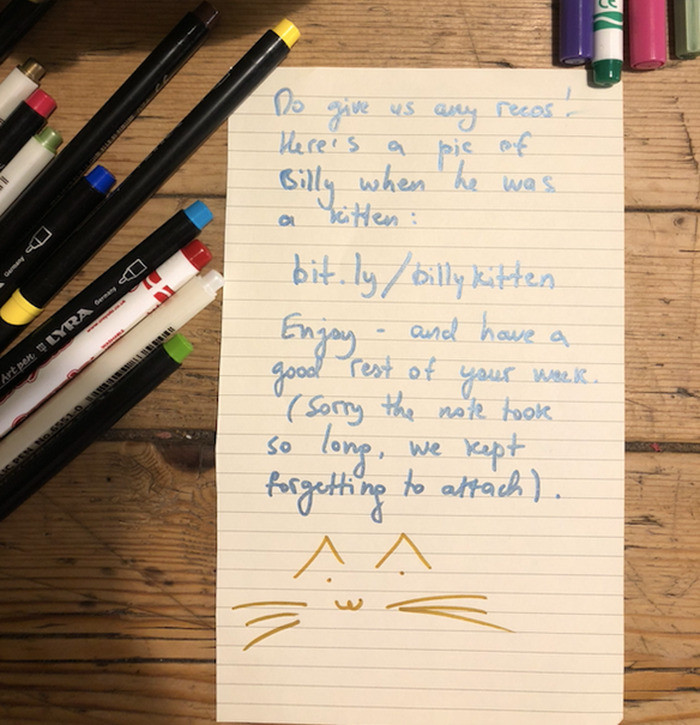 Do give us any recos!
Here's a pic of
Billy when he was
a kitten:
bit.ly/billykitten
Enjoy - and have a
good rest of your week.
(Sorry the note took
so long, we kept
forgetting to attach).
Germany
Germany
Art pen LYRA
CE